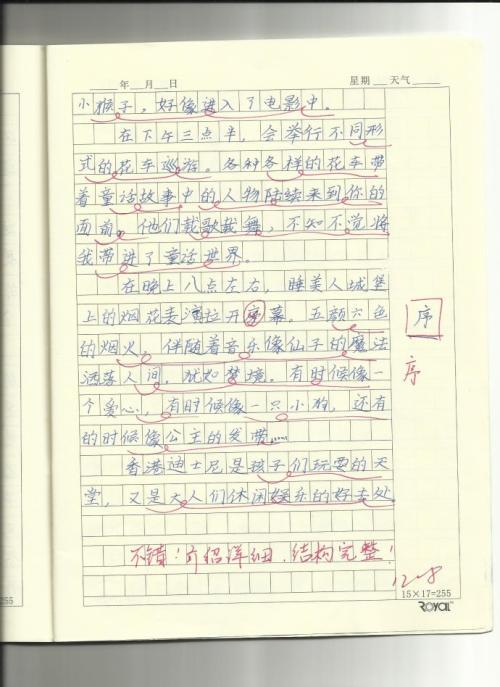 年 月 日 星期 天气
小猴子，好像进入了电影中。
在下午三点半，会举行不同形
式的花车巡游。各种各样的花车带
着童话故事中的人物陆续来到你的
面前。他们载歌载舞，不知不觉将
我带进了童话世界。
在晚上八点左右，睡美人城堡
上的烟花表演拉开序幕。五颜六色
的烟火，伴随着音乐像仙子的魔法
洒落人间，犹如梦境。有时候像一
个爱心，有时候像一只小狗，还有
的时候像公主的发带……
香港迪士尼是孩子们玩耍的天
堂，又是大人们休闲娱乐的好去处。
序
序
不错！介绍详细，结构完整！
12.8
15×17=255
ROYAL
255